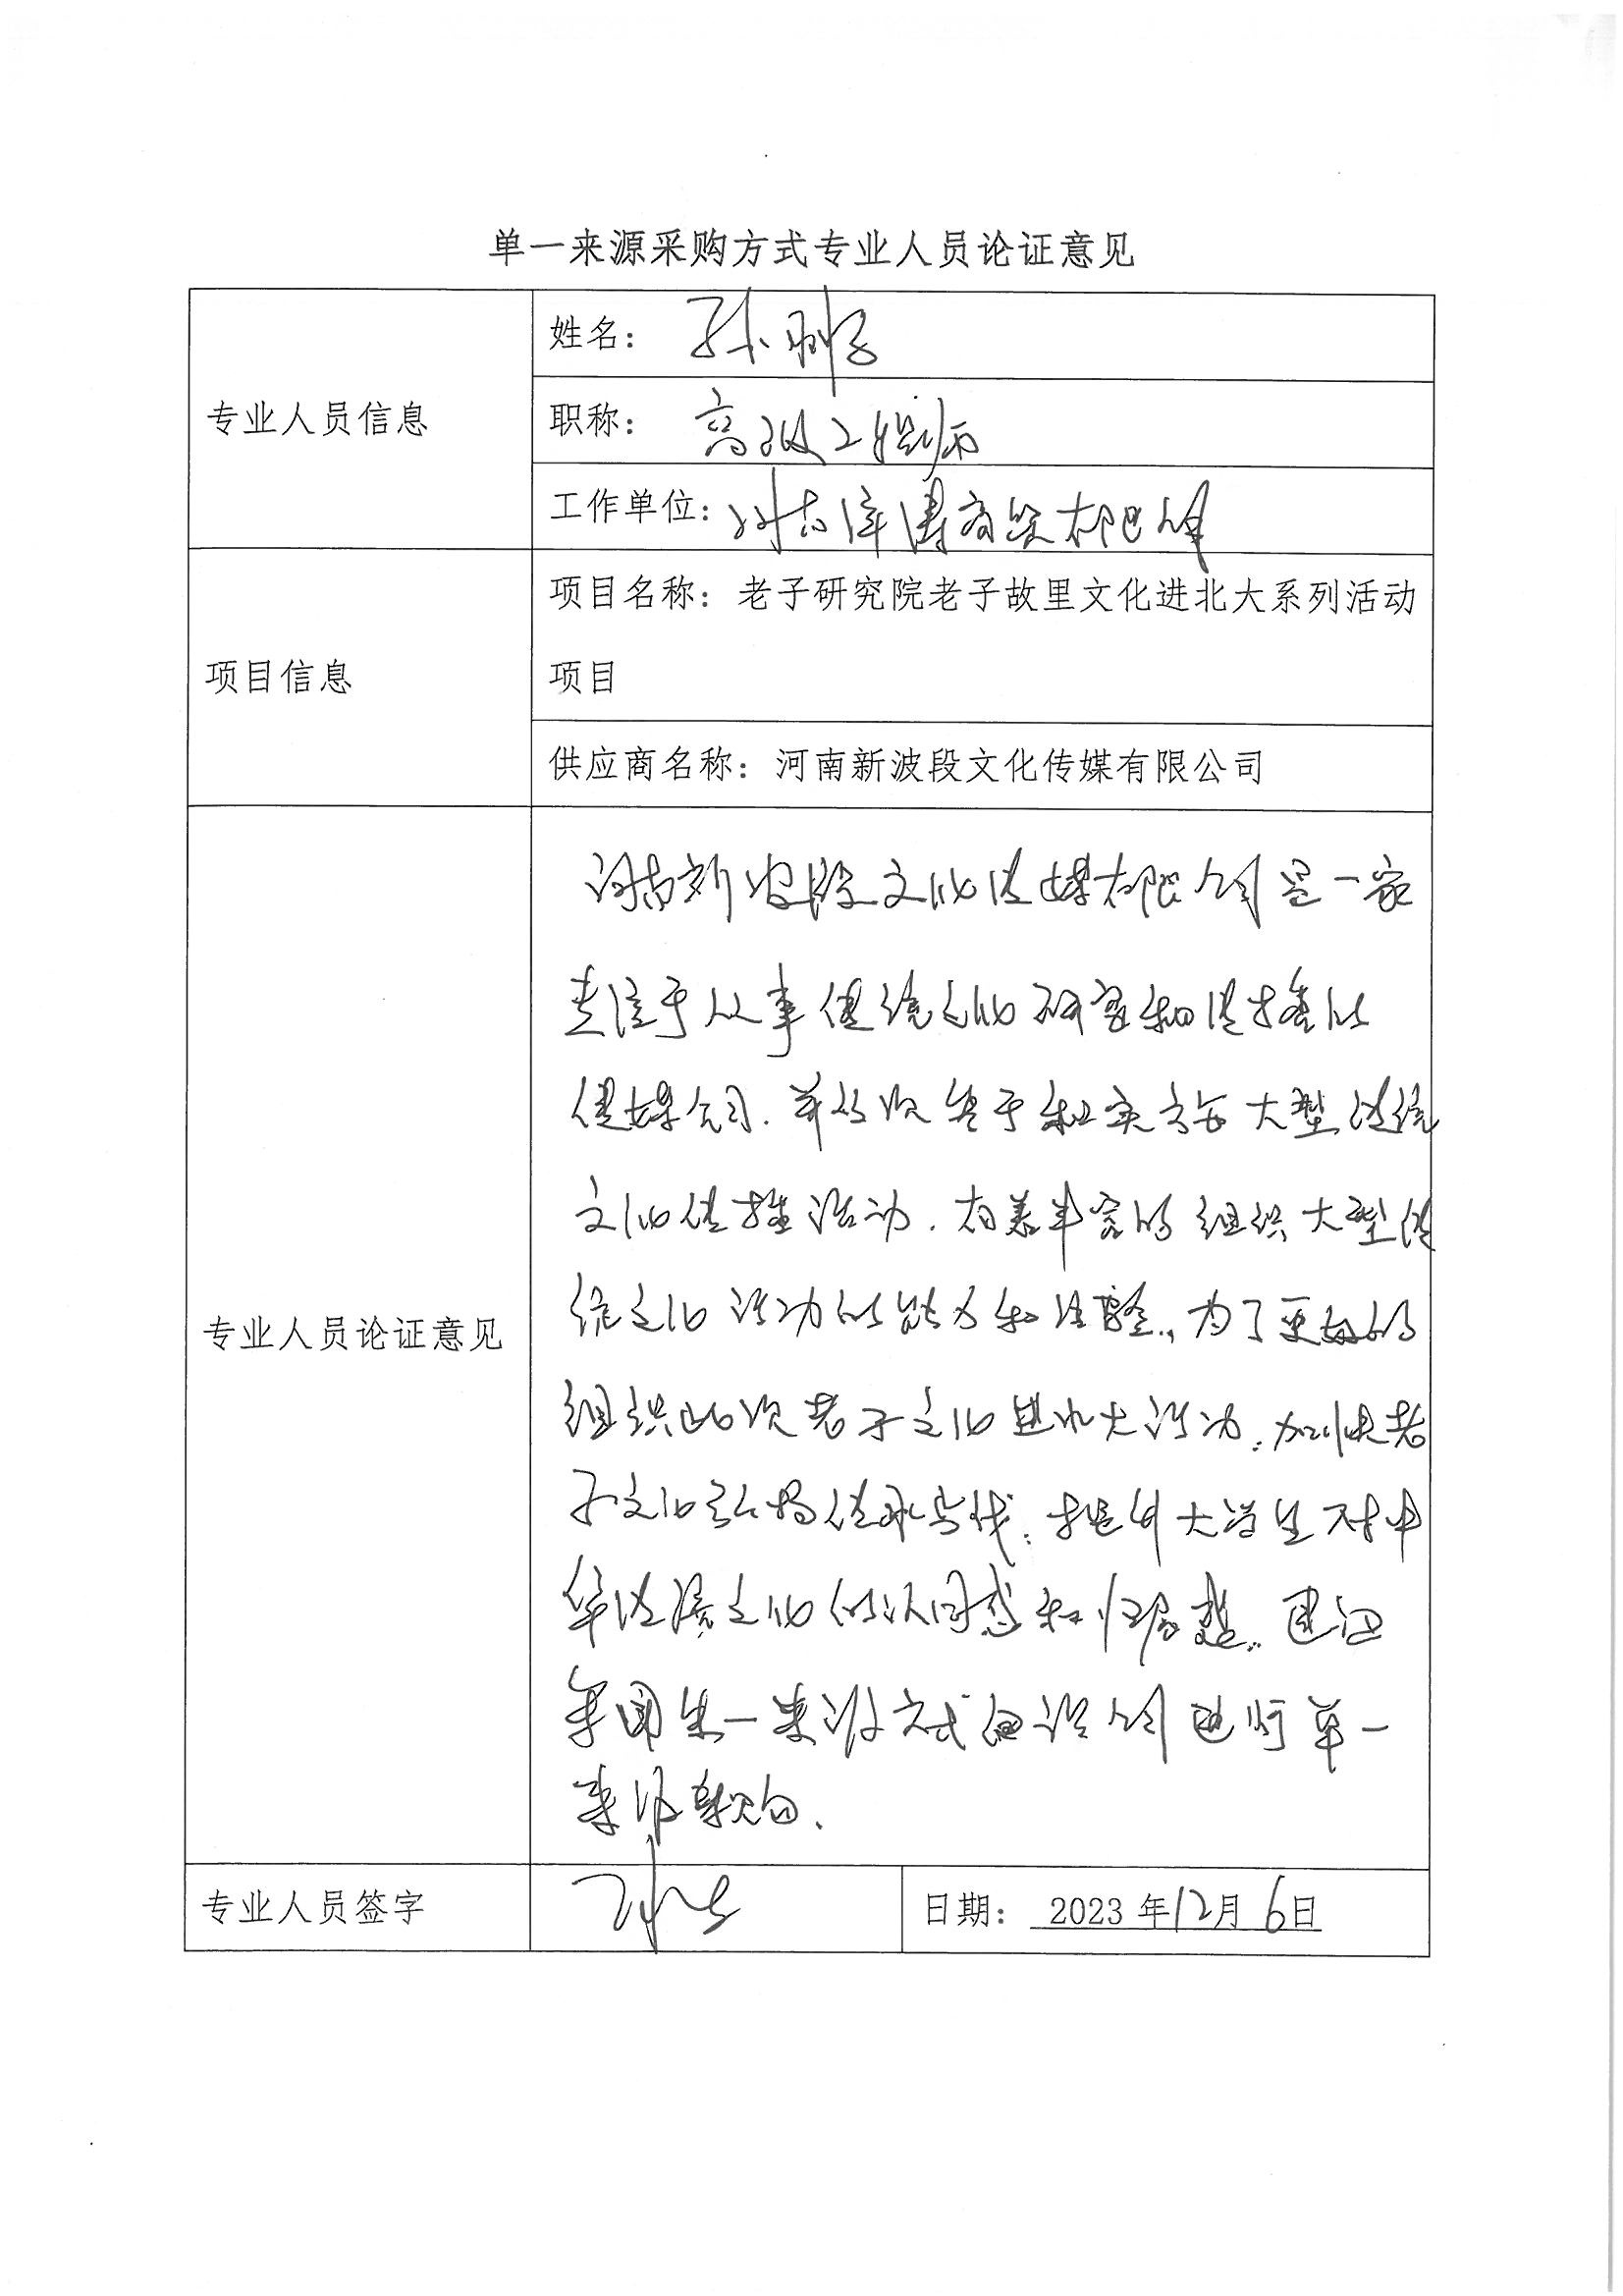 单一来源采购方式专业人员论证意见
专业人员信息
姓名: 孙
职称: 高级工程师
工作单位: 河南商贸有限公司
项目信息
项目名称: 老子研究院老子故里文化进北大系列活动
项目
供应商名称: 河南新波段文化传媒有限公司
专业人员论证意见
河南新波段文化传媒有限公司是一家
专注于从事传统文化研究和传播的
传媒公司.并多次参于和实施大型传统
文化传播活动.有着丰富的组织大型传
统文化活动的能力和经验.,为了更好的
组织此次老子文化进北大活动:加快老
子文化弘扬传承步伐:提升大学生对中
华传统文化的认同感和归属感..建议
采用单一来源方式向该公司进行单一
来源采购.
专业人员签字
日期: 2023年12月6日